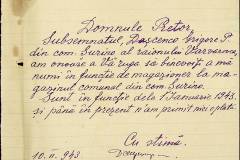 Domnule Pretor,
Subsemnatul, Dascenco Grigore P.
din com. Surino al raionului Varvarovca,
am onoare a Vă ruga să binevoiți a mă
numi în funcție de magazioner la ma-
gazinul comunal din com. Surino.
Sunt în funcție dela 1 Ianuarie 1943
și până în prezent n'am primit nici o plată.
Cu stimă
10.II.943